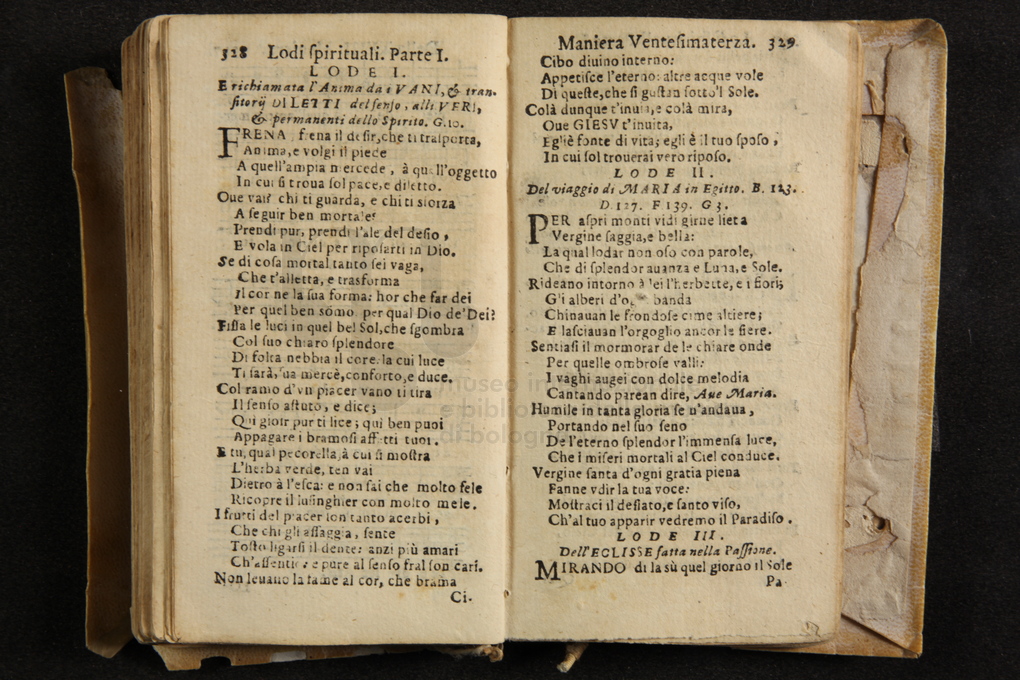 328 Lodi ſpirituali. Parte I.
LODE I.
E richiamata l'Anima da i VANI, & tran-
ſitorij DILETTI del ſenſo, alli VERI,
& permanenti dello Spirito. G. 10.
FRENA, frena il deſir, che ti traſporta,
Anima, e volgi il piede
A quell'ampia mercede, à quell'oggetto
In cui ſi troua ſol pace, e diletto.
Oue vai? chi ti guarda, e chi ti sforza
A ſeguir ben mortale?
Prendi pur, prendi l'ale del deſio,
E vola in Ciel per ripoſarti in Dio.
Se di coſa mortal tanto ſei vaga,
Che t'alletta, e trasforma
Il cor ne la ſua forma: hor che far dei
Per quel ben sōmo, per qual Dio de' Dei?
Fiſſa le luci in quel bel Sol, che ſgombra
Col ſuo chiaro ſplendore
Di folta nebbia il core: la cui luce
Ti ſarà, ſua mercè, conforto, e duce.
Col ramo d'vn piacer vano ti tira
Il ſenſo aſtuto, e dice;
Qui gioir pur ti lice; qui ben puoi
Appagare i bramoſi affetti tuoi.
E tu, qual pecorella, à cui ſi moſtra
L'herba verde, ten vai
Dietro à l'eſca: e non ſai che molto fele
Ricopre il luſinghier con molto mele.
I frutti del piacer ſon tanto acerbi,
Che chi gli aſſaggia, ſente
Toſto ligarſi il dente: anzi più amari
Ch'aſſentio: e pure al ſenſo fral ſon cari.
Non leuano la fame al cor, che brama
Ci-
Maniera Venteſimaterza. 329
Cibo diuino interno:
Appetiſce l'eterno: altre acque vole
Di queſte, che ſi guſtan ſotto'l Sole.
Colà dunque t'inuia, e colà mira,
Oue GIESV t'inuita,
Egliè fonte di vita; egli è il tuo ſpoſo,
In cui ſol trouerai vero ripoſo.
LODE II.
Del viaggio di MARIA in Egitto. B. 123.
D. 127. F 139. G 3.
PER aſpri monti vidi girne lieta
Vergine ſaggia, e bella:
La qual lodar non oſo con parole,
Che di ſplendor auanza e Luna, e Sole.
Rideano intorno à lei l'herbette, e i fiori;
Gli alberi d'ogni banda
Chinauan le frondoſe cime altiere;
E laſciauan l'orgoglio ancor le fiere.
Sentiaſi il mormorar de le chiare onde
Per quelle ombroſe valli:
I vaghi augei con dolce melodia
Cantando parean dire, Aue Maria.
Humile in tanta gloria ſe n'andaua,
Portando nel ſuo ſeno
De l'eterno ſplendor l'immenſa luce,
Che i miſeri mortali al Ciel conduce.
Vergine ſanta d'ogni gratia piena
Fanne vdir la tua voce:
Moſtraci il deſiato, e ſanto viſo,
Ch'al tuo apparir vedremo il Paradiſo.
LODE III.
Dell'ECLISSE fatta nella Paſſione.
MIRANDO di la sù quel giorno il Sole
Pa-